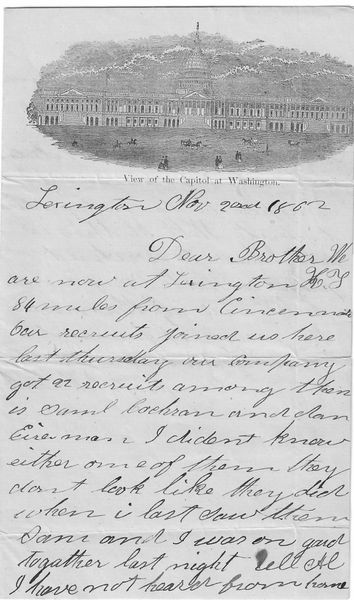 View of the Capitol at Washington.
Lexington Nov 2nd 1862
Dear Brother We
are now at Lexington K.Y
84 miles from Cincennati
Our recruits joined us here
last thursday our Company
got 22 recruits among them
is Saml Cochran and dan
Eireman I dident know
either one of them they
dont look like they did
when i last saw them
Sam and I was on gard
togather last night Al
I have not heard from home